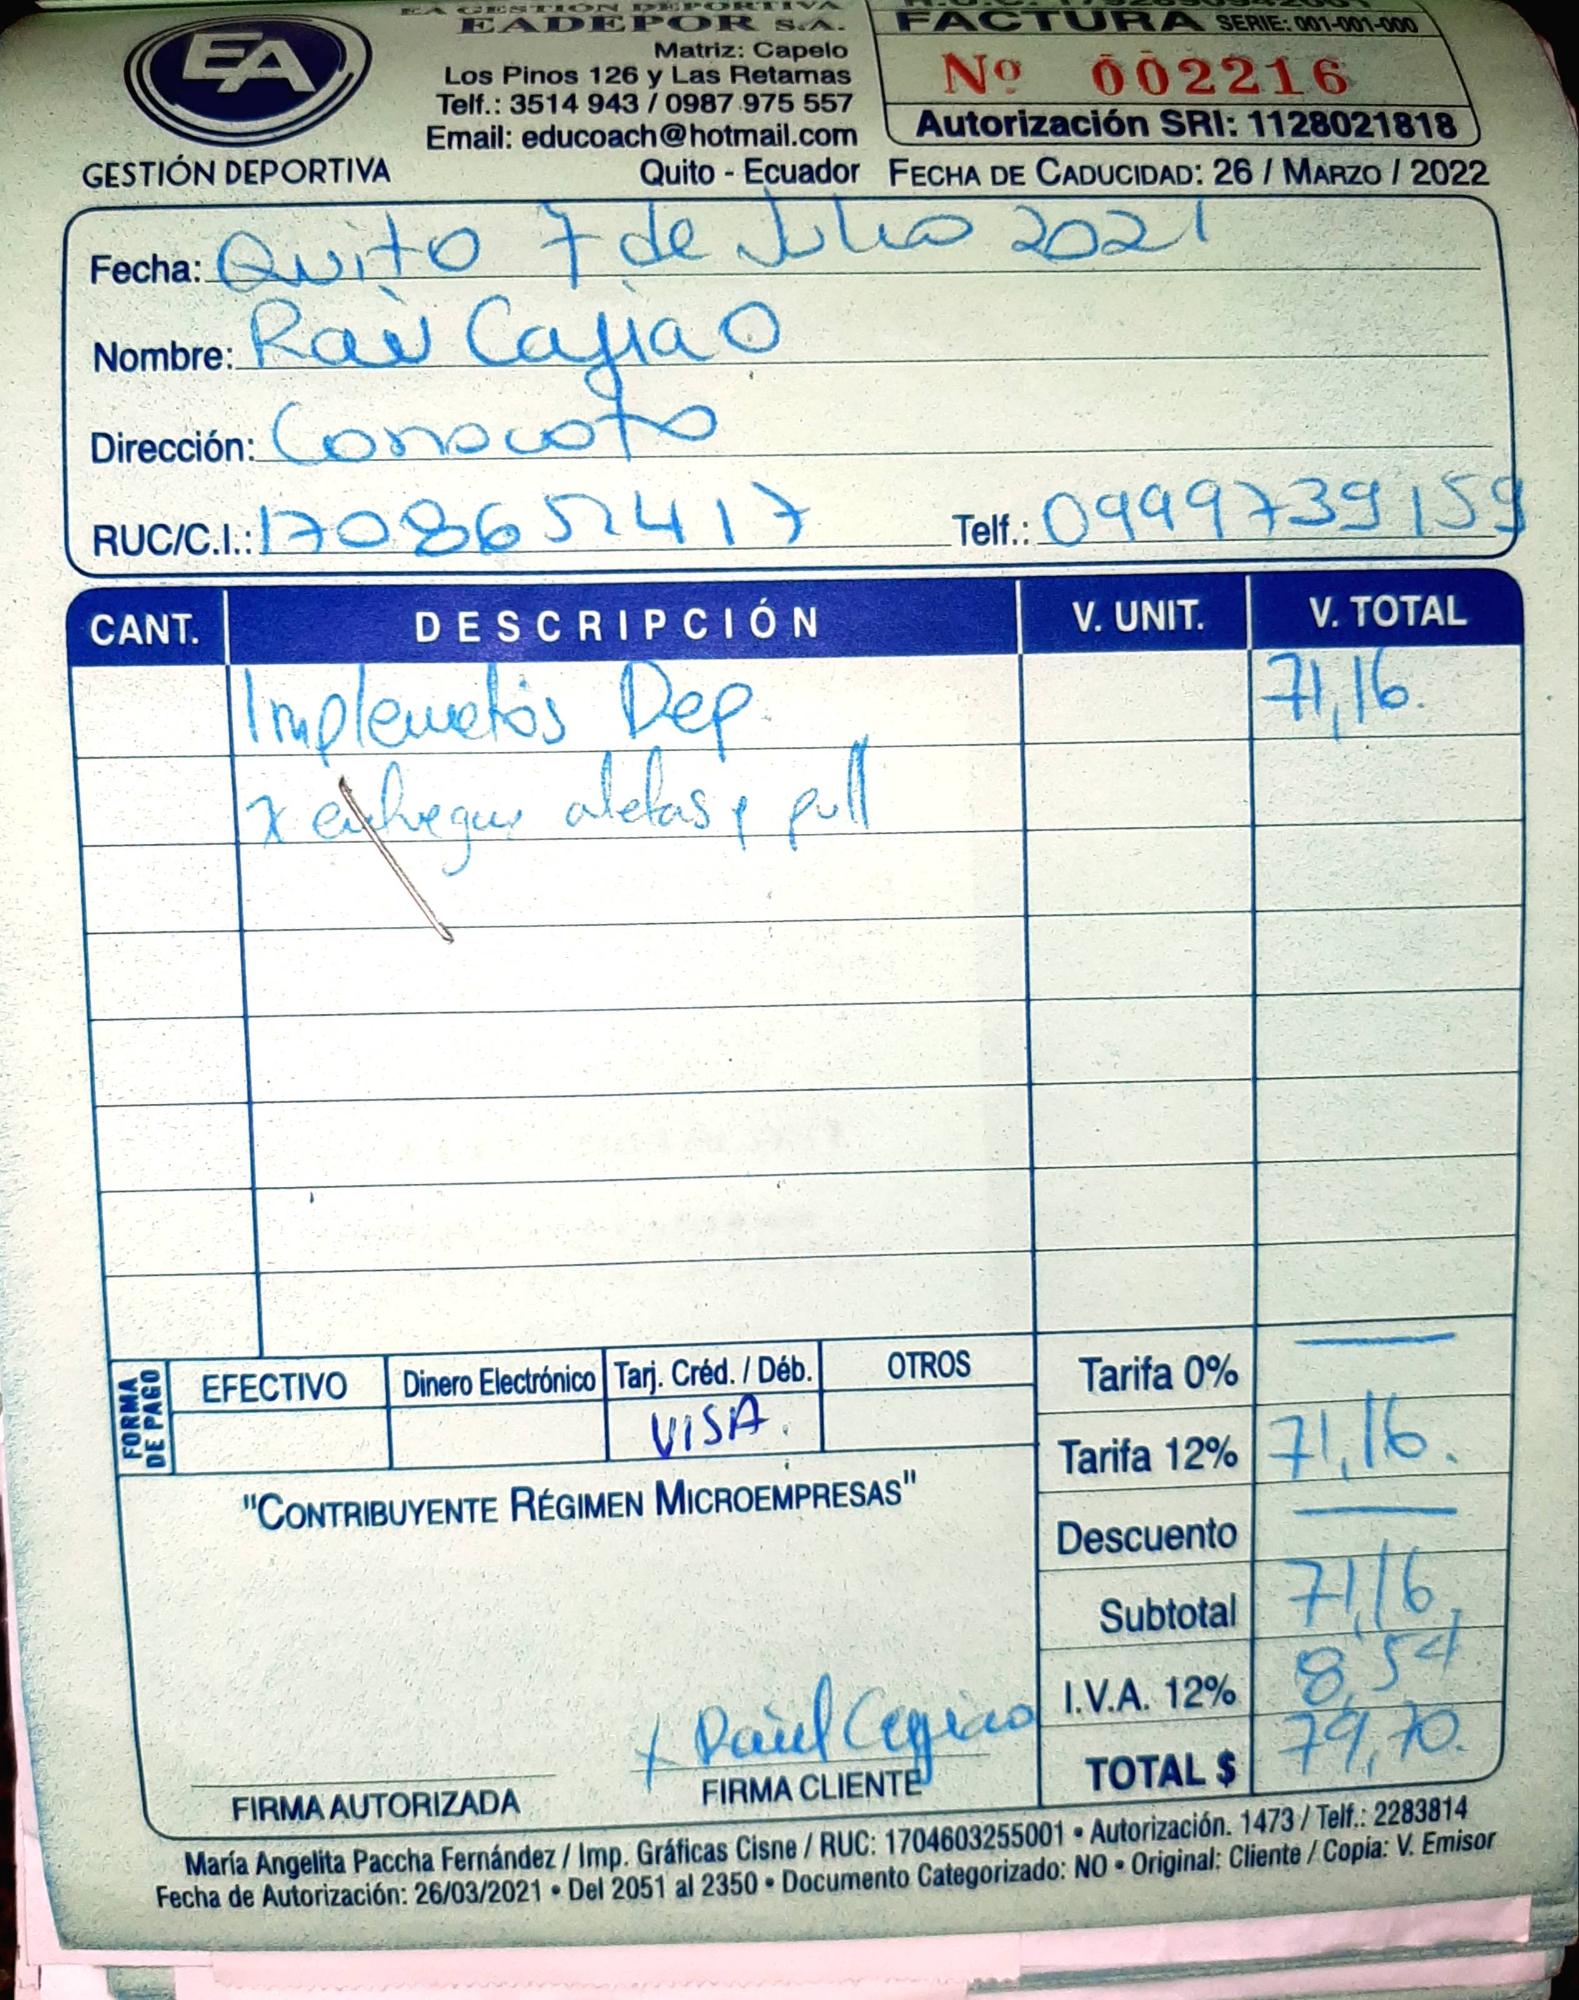 EA GESTIÓN DEPORTIVA
EADEPOR S.A.
Matriz: Capelo
Los Pinos 126 y Las Retamas
Telf.: 3514 943 / 0987 975 557
Email: educoach@hotmail.com
Quito - Ecuador
EA
GESTIÓN DEPORTIVA
FACTURA SERIE: 001-001-000
Nº 002216
Autorización SRI: 1128021818
FECHA DE CADUCIDAD: 26 / MARZO / 2022
Fecha: Quito 7 de Julio 2021
Nombre: Raùl Cajiao
Dirección: Conocoto
RUC/C.I.: 1708652417 Telf.: 0999739159
CANT. DESCRIPCIÓN V. UNIT. V. TOTAL
Implemetos Dep. 71,16.
x entregar aletas y pull
FORMA DE PAGO
EFECTIVO Dinero Electrónico Tarj. Créd. / Déb. OTROS
VISA.
"CONTRIBUYENTE RÉGIMEN MICROEMPRESAS"
Tarifa 0% —
Tarifa 12% 71,16.
Descuento —
Subtotal 71,16,
I.V.A. 12% 8,54
TOTAL $ 79,70.
x Raùl Cajiao
FIRMA AUTORIZADA FIRMA CLIENTE
María Angelita Paccha Fernández / Imp. Gráficas Cisne / RUC: 1704603255001 • Autorización. 1473 / Telf.: 2283814
Fecha de Autorización: 26/03/2021 • Del 2051 al 2350 • Documento Categorizado: NO • Original: Cliente / Copia: V. Emisor